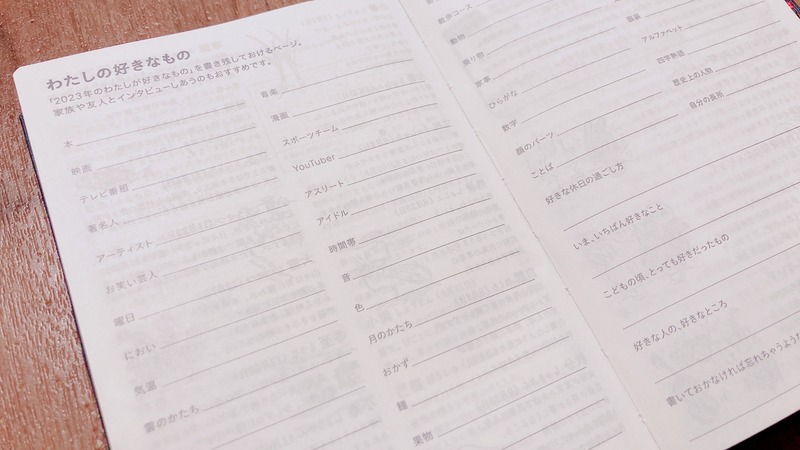 わたしの好きなもの
「2023年のわたしが好きなもの」を書き残しておけるページ。
家族や友人とインタビューしあうのもおすすめです。
本
映画
テレビ番組
著名人
アーティスト
お笑い芸人
曜日
におい
気温
雲のかたち
音楽
漫画
スポーツチーム
YouTuber
アスリート
アイドル
時間帯
音
色
月のかたち
おかず
麺
果物
散歩コース
動物
乗り物
家事
ひらがな
数字
顔のパーツ
ことば
服装
アルファベット
四字熟語
歴史上の人物
自分の長所
好きな休日の過ごし方
いま、いちばん好きなこと
こどもの頃、とっても好きだったもの
好きな人の、好きなところ
書いておかなければ忘れちゃうような